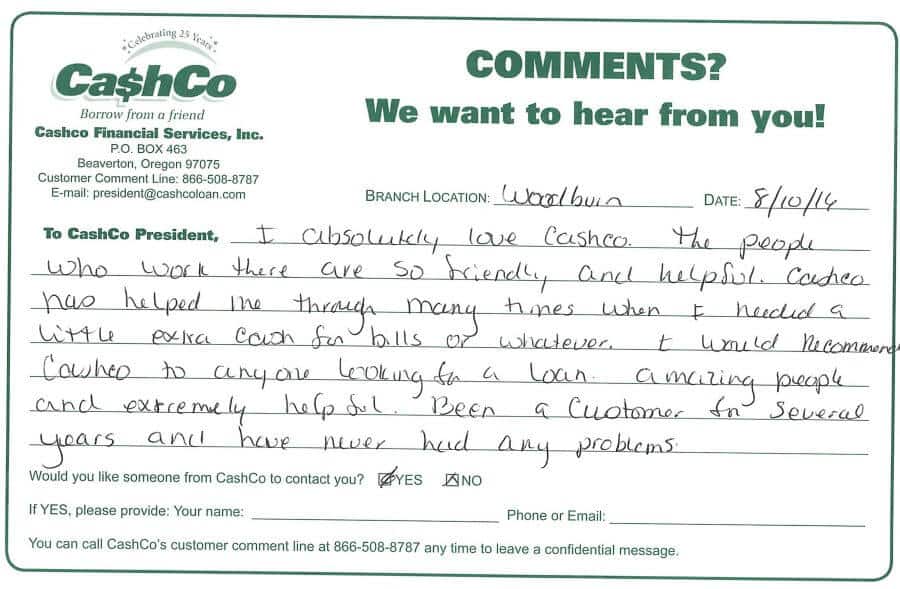 Celebrating 25 Years
Ca$hCo
Borrow from a friend
Cashco Financial Services, Inc.
P.O. BOX 463
Beaverton, Oregon 97075
Customer Comment Line: 866-508-8787
E-mail: president@cashcoloan.com
COMMENTS?
We want to hear from you!
BRANCH LOCATION: Woodburn DATE: 8/10/14
To CashCo President, I absolutely love Cashco. The people
who work there are so friendly and helpful. Cashco
has helped me through many times when I needed a
little extra cash for bills or whatever. I would recommend
Cashco to anyone looking for a loan. amazing people
and extremely helpful. Been a customer for several
years and have never had any problems.
Would you like someone from CashCo to contact you? YES NO
If YES, please provide: Your name: Phone or Email:
You can call CashCo's customer comment line at 866-508-8787 any time to leave a confidential message.